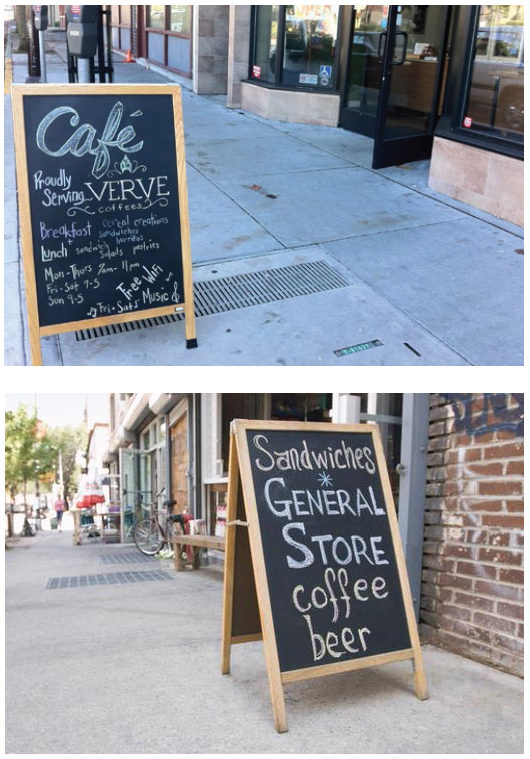 Café
Proudly
Serving VERVE
coffees
Breakfast cereal creations
sandwiches
burritos
Lunch sandwich
salads pastries
Mon-Thurs 7am-11pm
Fri-Sat 7-5
Sun 9-5
Free WiFi
Fri+Sats Music
Sandwiches
GENERAL
STORE
coffee
beer